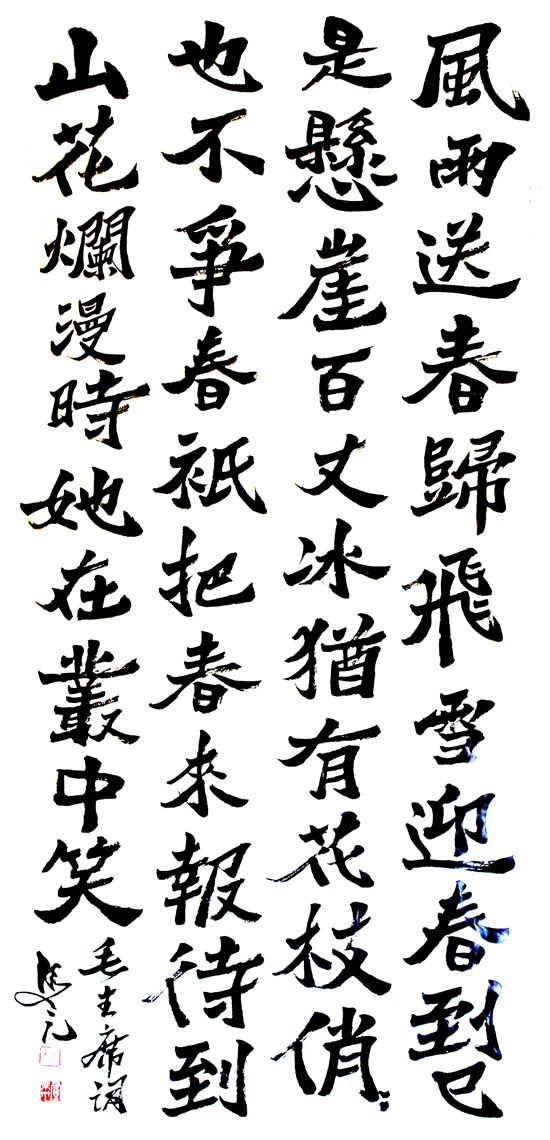 風雨送春歸飛雪迎春到已
是懸崖百丈冰猶有花枝俏〻
也不爭春祇把春來報待到
山花爛漫時她在叢中笑
毛主席詞